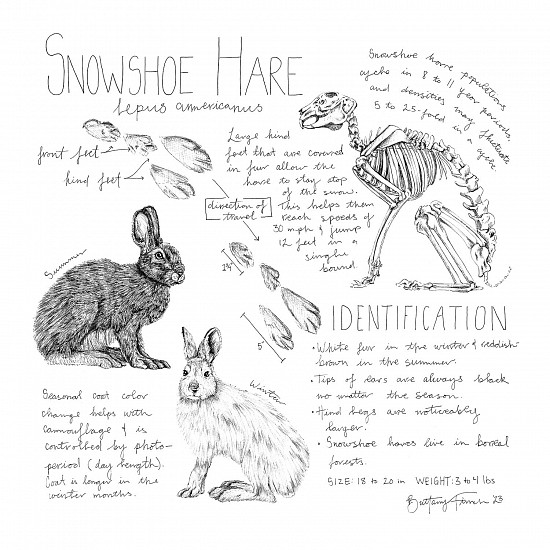 SNOWSHOE HARE
Lepus americanus
Snowshoe hare populations
cycle in 8 to 11 year periods,
and densities may fluctuate
5 to 25-fold in a cycle.
front feet
hind feet
Large hind
feet that are covered
in fur allow the
hare to stay atop
of the snow.
This helps them
reach speeds of
30 mph & jump
12 feet in a
single
bound.
direction of
travel
5"
Summer
Winter
IDENTIFICATION
• White fur in the winter & reddish
brown in the summer.
• Tips of ears are always black
no matter the season.
• Hind legs are noticeably
larger.
• Snowshoe hares live in boreal
forests.
SIZE: 18 to 20 in WEIGHT: 3 to 4 lbs
Seasonal coat color
change helps with
camouflage & is
controlled by photo-
period (day length).
Coat is longer in the
winter months.
Brittany '23